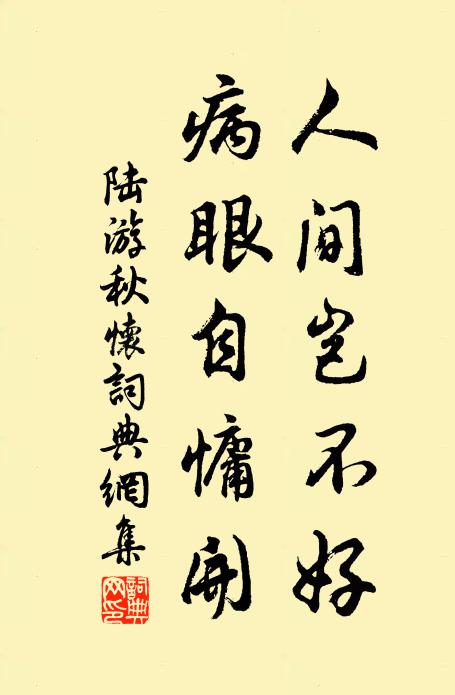 人间岂不好
病眼自慵開
陆游秋懷詞典網集
詞典
网印